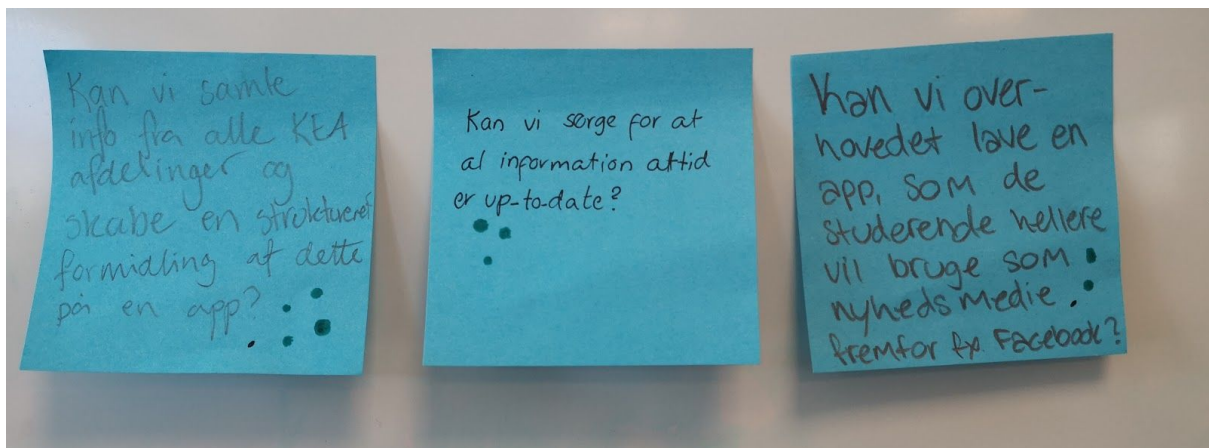 Kan vi samle
info fra alle KEA
afdelinger og
skabe en struktureret
formidling af dette
på en app?
Kan vi sørge for at
al information altid
er up-to-date?
Kan vi over-
hovedet lave en
app, som de
studerende hellere
vil bruge som
nyhedsmedie
fremfor fx Facebook?